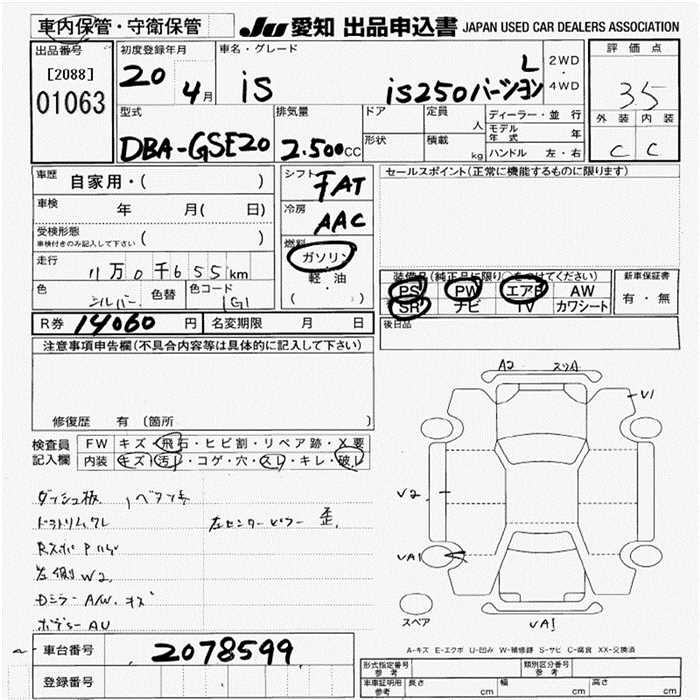 車内保管・守衛保管
JU 愛知 出品申込書 JAPAN USED CAR DEALERS ASSOCIATION
出品番号
[2088]
01063
初度登録年月
20 4月
車名・グレード
iS iS250バージョンL
2WD
・
4WD
評価点
35
外装 内装
C C
型式
DBA-GSE20
排気量
2.500CC
ドア
形状
定員 人
積載 kg
ディーラー・並行
モデル年式 年
ハンドル 左・右
車歴 自家用・( )
車検 年 月( 日)
受検形態
車検付きのみ記入して下さい ( )
走行 11万0千655km
色 シルバー 色替 色コード 1G1
シフト FAT
冷房 AAC
燃料
ガソリン
・
軽油
( )
セールスポイント(正常に機能するものに限ります)
装備品(純正品に限り○をつけてください)
PS PW エアB AW
SR ナビ TV カワシート
新車保証書
有・無
後日品
R券 14060 円 名変期限 月 日
注意事項申告欄(不具合内容等は具体的に記入して下さい)
修復歴 有 〔箇所 〕
検査員記入欄
FW キズ・飛石・ヒビ割・リペア跡・X要
内装 キズ・汚レ・コゲ・穴・スレ・キレ・破レ
ダッシュ板
左センターピラー 歪
左側 W2
Dミラー A/W. キズ
ボデー AU
A2
V1
V2
VA1
VA1
スペア
A-キズ E-エクボ U-凹み W-補修跡 S-サビ C-腐食 XX-交換済
車台番号 2078599
登録番号
形式指定番号 参考
類別区分番号 参考
車庫証明用 参考 長さ cm 幅 cm 高さ cm